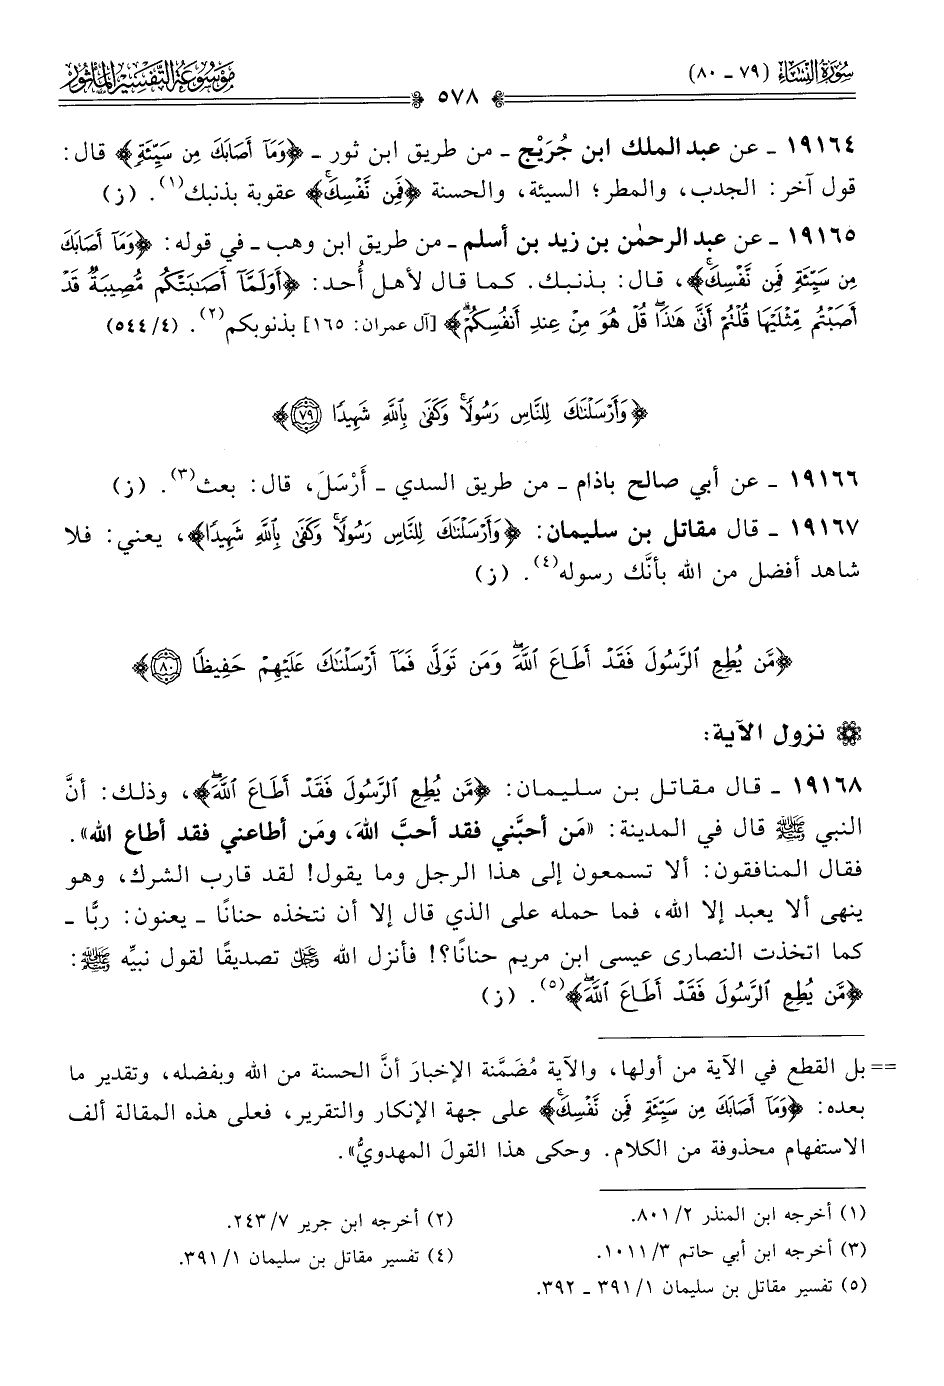 سُورَةُ النِّسَاء (٧٩ - ٨٠)
٥٧٨
مَوْسُوعَة التَّفسِير المَأثُور
١٩١٦٤ - عن عبد الملك ابن جُرَيْج - من طريق ابن ثور - ﴿وَمَآ أَصَابَكَ مِن سَيِّئَةٖ﴾ قال:
قول آخر: الجدب، والمطر؛ السيئة، والحسنة ﴿فَمِن نَّفۡسِكَۚ﴾ عقوبة بذنبك(١). (ز)
١٩١٦٥ - عن عبد الرحمٰن بن زيد بن أسلم - من طريق ابن وهب - في قوله: ﴿وَمَآ أَصَابَكَ
مِن سَيِّئَةٖ فَمِن نَّفۡسِكَۚ﴾، قال: بذنبك. كما قال لأهل أُحد: ﴿أَوَلَمَّآ أَصَٰبَتۡكُم مُّصِيبَةٞ قَدۡ
أَصَبۡتُم مِّثۡلَيۡهَا قُلۡتُمۡ أَنَّىٰ هَٰذَاۖ قُلۡ هُوَ مِنۡ عِندِ أَنفُسِكُمۡۗ﴾ [آل عمران: ١٦٥] بذنوبكم(٢). (٥٤٤/٤)
﴿وَأَرۡسَلۡنَٰكَ لِلنَّاسِ رَسُولٗاۚ وَكَفَىٰ بِٱللَّهِ شَهِيدٗا ٧٩﴾
١٩١٦٦ - عن أبي صالح باذام - من طريق السدي - أَرْسَلَ، قال: بعث(٣). (ز)
١٩١٦٧ - قال مقاتل بن سليمان: ﴿وَأَرۡسَلۡنَٰكَ لِلنَّاسِ رَسُولٗاۚ وَكَفَىٰ بِٱللَّهِ شَهِيدٗا﴾، يعني: فلا
شاهد أفضل من الله بأنَّك رسوله(٤). (ز)
﴿مَّن يُطِعِ ٱلرَّسُولَ فَقَدۡ أَطَاعَ ٱللَّهَۖ وَمَن تَوَلَّىٰ فَمَآ أَرۡسَلۡنَٰكَ عَلَيۡهِمۡ حَفِيظٗا ٨٠﴾
نزول الآية:
١٩١٦٨ - قال مقاتل بن سليمان: ﴿مَّن يُطِعِ ٱلرَّسُولَ فَقَدۡ أَطَاعَ ٱللَّهَۖ﴾، وذلك: أنَّ
النبي ﷺ قال في المدينة: «مَن أحبَّني فقد أحبَّ اللهَ، ومَن أطاعني فقد أطاع الله».
فقال المنافقون: ألا تسمعون إلى هذا الرجل وما يقول! لقد قارب الشرك، وهو
ينهى ألا يعبد إلا الله، فما حمله على الذي قال إلا أن نتخذه حنانًا - يعنون: ربًّا -
كما اتخذت النصارى عيسى ابن مريم حنانًا؟! فأنزل الله عز وجل تصديقًا لقول نبيِّه ﷺ:
﴿مَّن يُطِعِ ٱلرَّسُولَ فَقَدۡ أَطَاعَ ٱللَّهَۖ﴾(٥). (ز)
== بل القطع في الآية من أولها، والآية مُضَمَّنة الإخبارَ أنَّ الحسنة من الله وبفضله، وتقدير ما
بعده: ﴿وَمَآ أَصَابَكَ مِن سَيِّئَةٖ فَمِن نَّفۡسِكَۚ﴾ على جهة الإنكار والتقرير، فعلى هذه المقالة ألف
الاستفهام محذوفة من الكلام. وحكى هذا القولَ المهدويُّ».
(١) أخرجه ابن المنذر ٨٠١/٢.
(٢) أخرجه ابن جرير ٢٤٣/٧.
(٣) أخرجه ابن أبي حاتم ١٠١١/٣.
(٤) تفسير مقاتل بن سليمان ٣٩١/١.
(٥) تفسير مقاتل بن سليمان ٣٩١/١ - ٣٩٢.